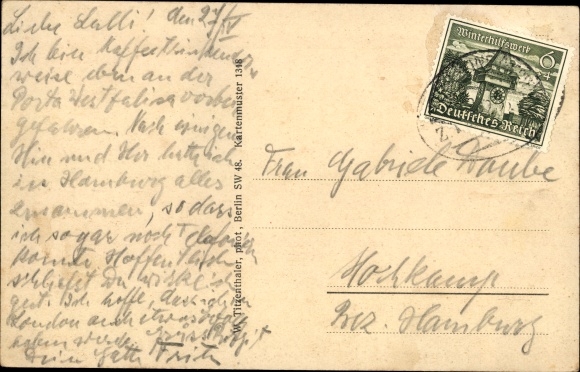 Liebe Lalli! den 27/IV
Ich bin Kaffeetrinkender
weise eben an der
Porta Westfalica vorbei
gefahren. Nach einigem
Hin und Her hatte ich
in Hamburg alles
zusammen, so dass
ich sogar noch
konnte. Hoffentlich
schläfst Du
gut. Ich hoffe, dass ich in
London auch etwas
haben werde.
Dein Gatte Fritz
W. Titzenthaler, phot., Berlin SW 48. Kartenmuster 1348
Winterhilfswerk
6+4
Deutsches Reich
Frau Gabriele Daube
Hochkamp
Bez. Hamburg